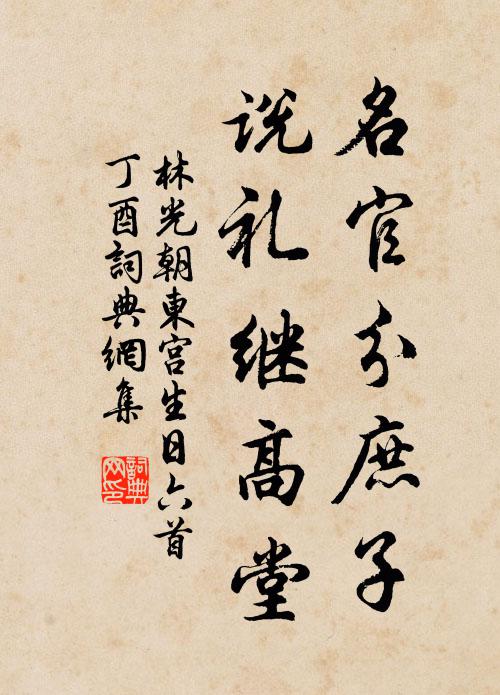 名官分庶子
说礼继高堂
林光朝東宫生日六首
丁酉詞典網集
詞典网印